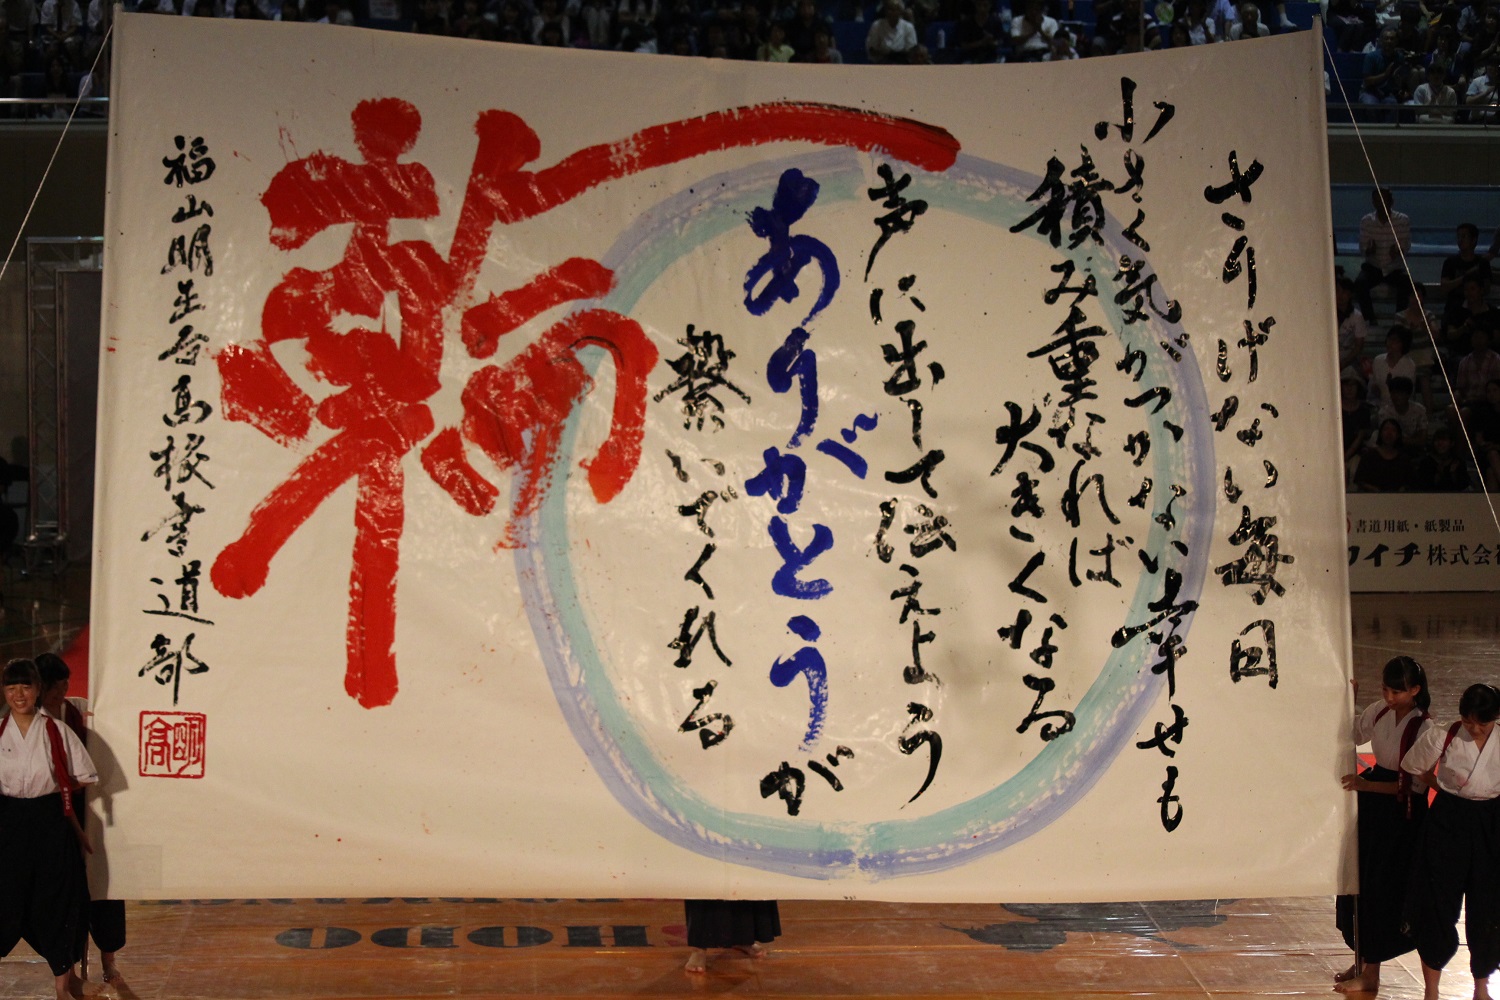 さりげない毎日
小さく気がつかない幸せも
積み重なれば
大きくなる
声に出して伝えよう
ありがとうが
繋いでくれる
輪
福山明王台高校書道部
明高
書道用紙・紙製品
株式会社
SHODO